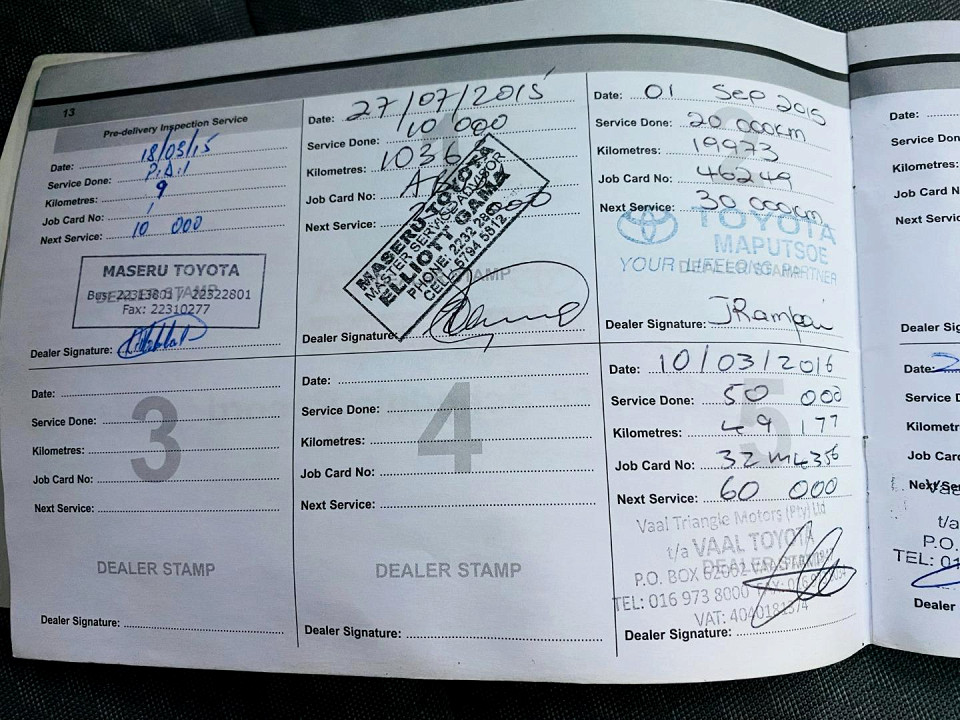 13
Pre-delivery Inspection Service
Date: 18/03/15
Service Done: P.D.I
Kilometres: 9
Job Card No: /
Next Service: 10 000
MASERU TOYOTA
DEALER STAMP
Bus: 22313801 / 22322801
Fax: 22310277
Dealer Signature:
Date: 27/07/2015
Service Done: 10 000
Kilometres: 1036
Job Card No:
Next Service:
MASERU TOYOTA
MASTER SERVICE ADVISOR
ELLIOTT GAMA
PHONE: 2232 280
CELL: 5794 5812
STAMP
Dealer Signature:
2
Date: 01 Sep 2015
Service Done: 20 000km
Kilometres: 19973
Job Card No: 46249
Next Service: 30 000km
TOYOTA
MAPUTSOE
YOUR LIFELONG PARTNER
DEALER STAMP
Dealer Signature:
3
Date:
Service Done:
Kilometres:
Job Card No:
Next Service:
DEALER STAMP
Dealer Signature:
4
Date:
Service Done:
Kilometres:
Job Card No:
Next Service:
DEALER STAMP
Dealer Signature:
5
Date: 10/03/2016
Service Done: 50 000
Kilometres: 49 177
Job Card No: 32ML356
Next Service: 60 000
Vaal Triangle Motors (Pty) Ltd
t/a VAAL TOYOTA
DEALER STAMP
P.O. BOX
TEL: 016 973 8000
VAT: 4040181574
Dealer Signature:
Date:
Service Don
Kilometres
Job Card N
Next Servic
Dealer Sig
Date:
Service D
Kilometr
Job Car
Next Se
Vaa
t/a
P.O.
TEL: 01
Dealer